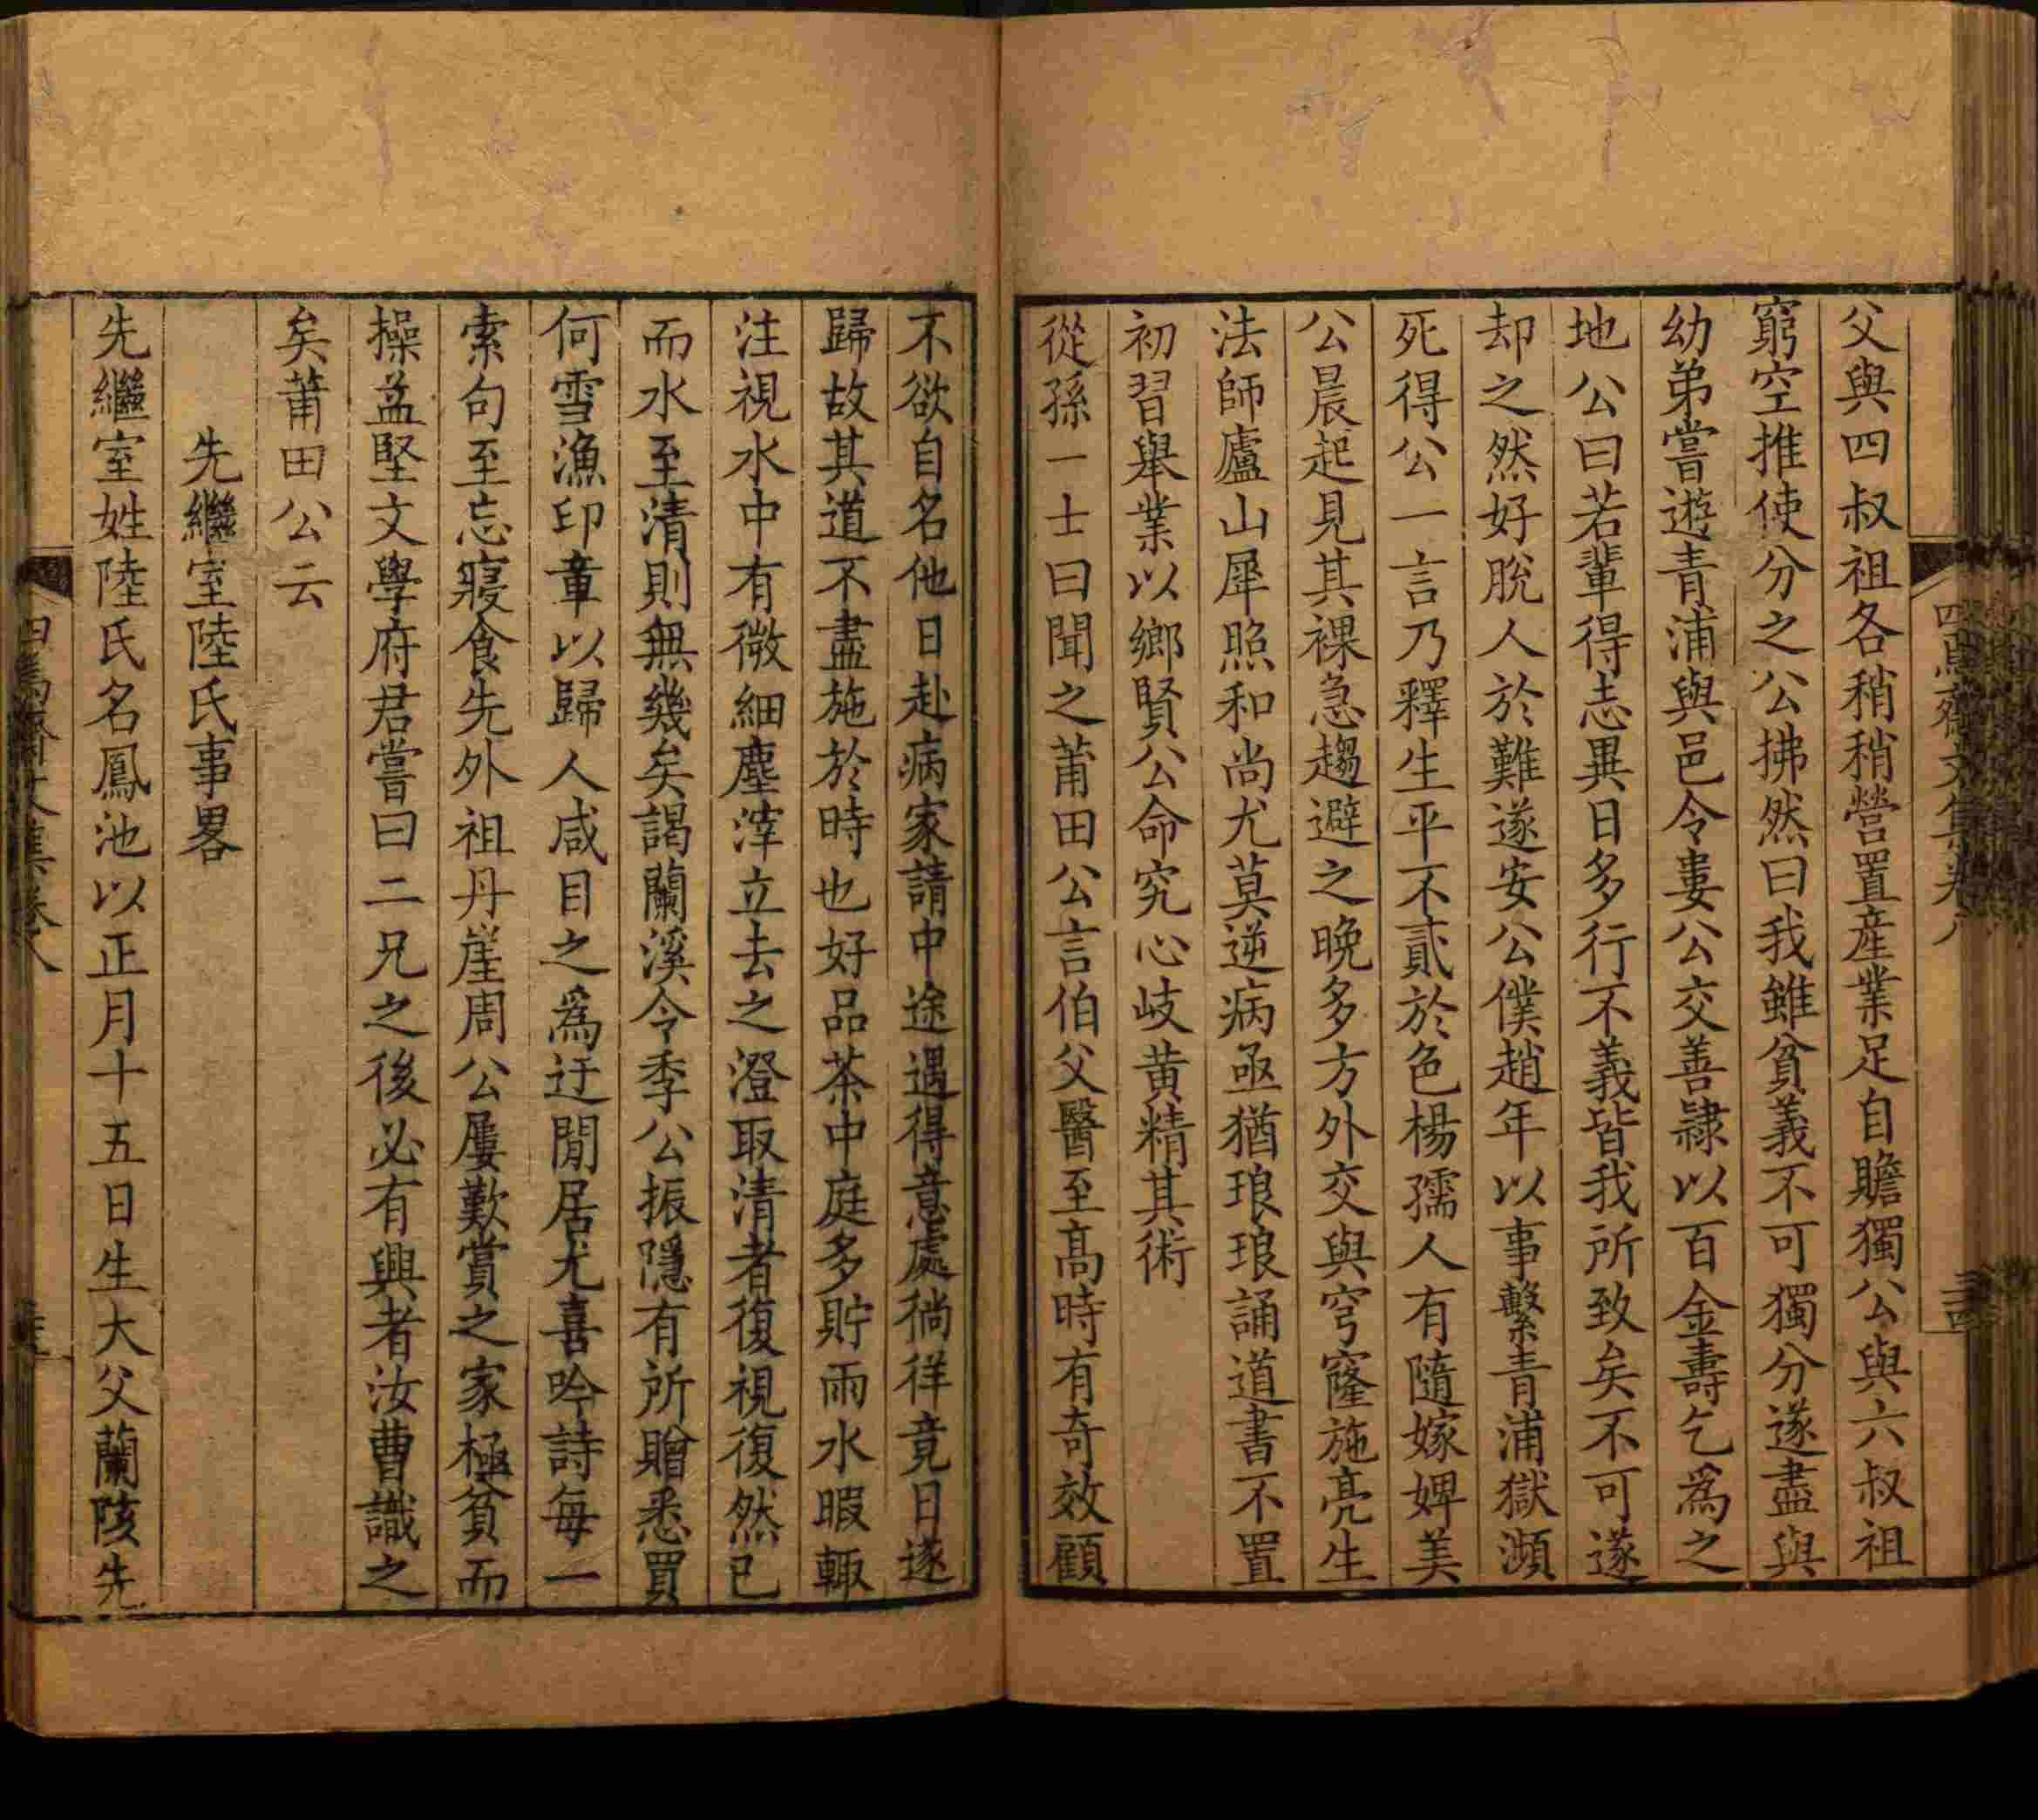 父與四叔祖各稍稍營置産業足自贍獨公與六叔祖
窮空推使分之公拂然曰我雖貧義不可獨分遂盡與
幼弟嘗遊青浦與邑令婁公交善隷以百金壽乞爲之
地公曰若輩得志異日多行不義皆我所致矣不可遂
却之然好脫人於難遂安公僕趙年以事繫青浦獄瀕
死得公一言乃釋生平不貳於色楊孺人有隨嫁婢美
公晨起見其裸急趨避之晚多方外交與穹窿施亮生
法師廬山犀照和尚尤莫逆病亟猶琅琅誦道書不置
初習舉業以鄉賢公命究心岐黄精其術
從孫一士曰聞之莆田公言伯父醫至高時有奇效顧
不欲自名他日赴病家請中途遇得意處徜徉竟日遂
歸故其道不盡施於時也好品茶中庭多貯雨水暇輒
注視水中有微細塵滓立去之澄取清者復視復然已
而水至清則無幾矣謁蘭溪令季公振隱有所贈悉買
何雪漁印章以歸人咸目之爲迂閒居尤喜吟詩每一
索句至忘寢食先外祖丹崖周公屢歎賞之家極貧而
操孟堅文學府君嘗曰二兄之後必有興者汝曹識之
矣莆田公云
先繼室陸氏事畧
先繼室姓陸氏名鳳池以正月十五日生大父蘭陔先